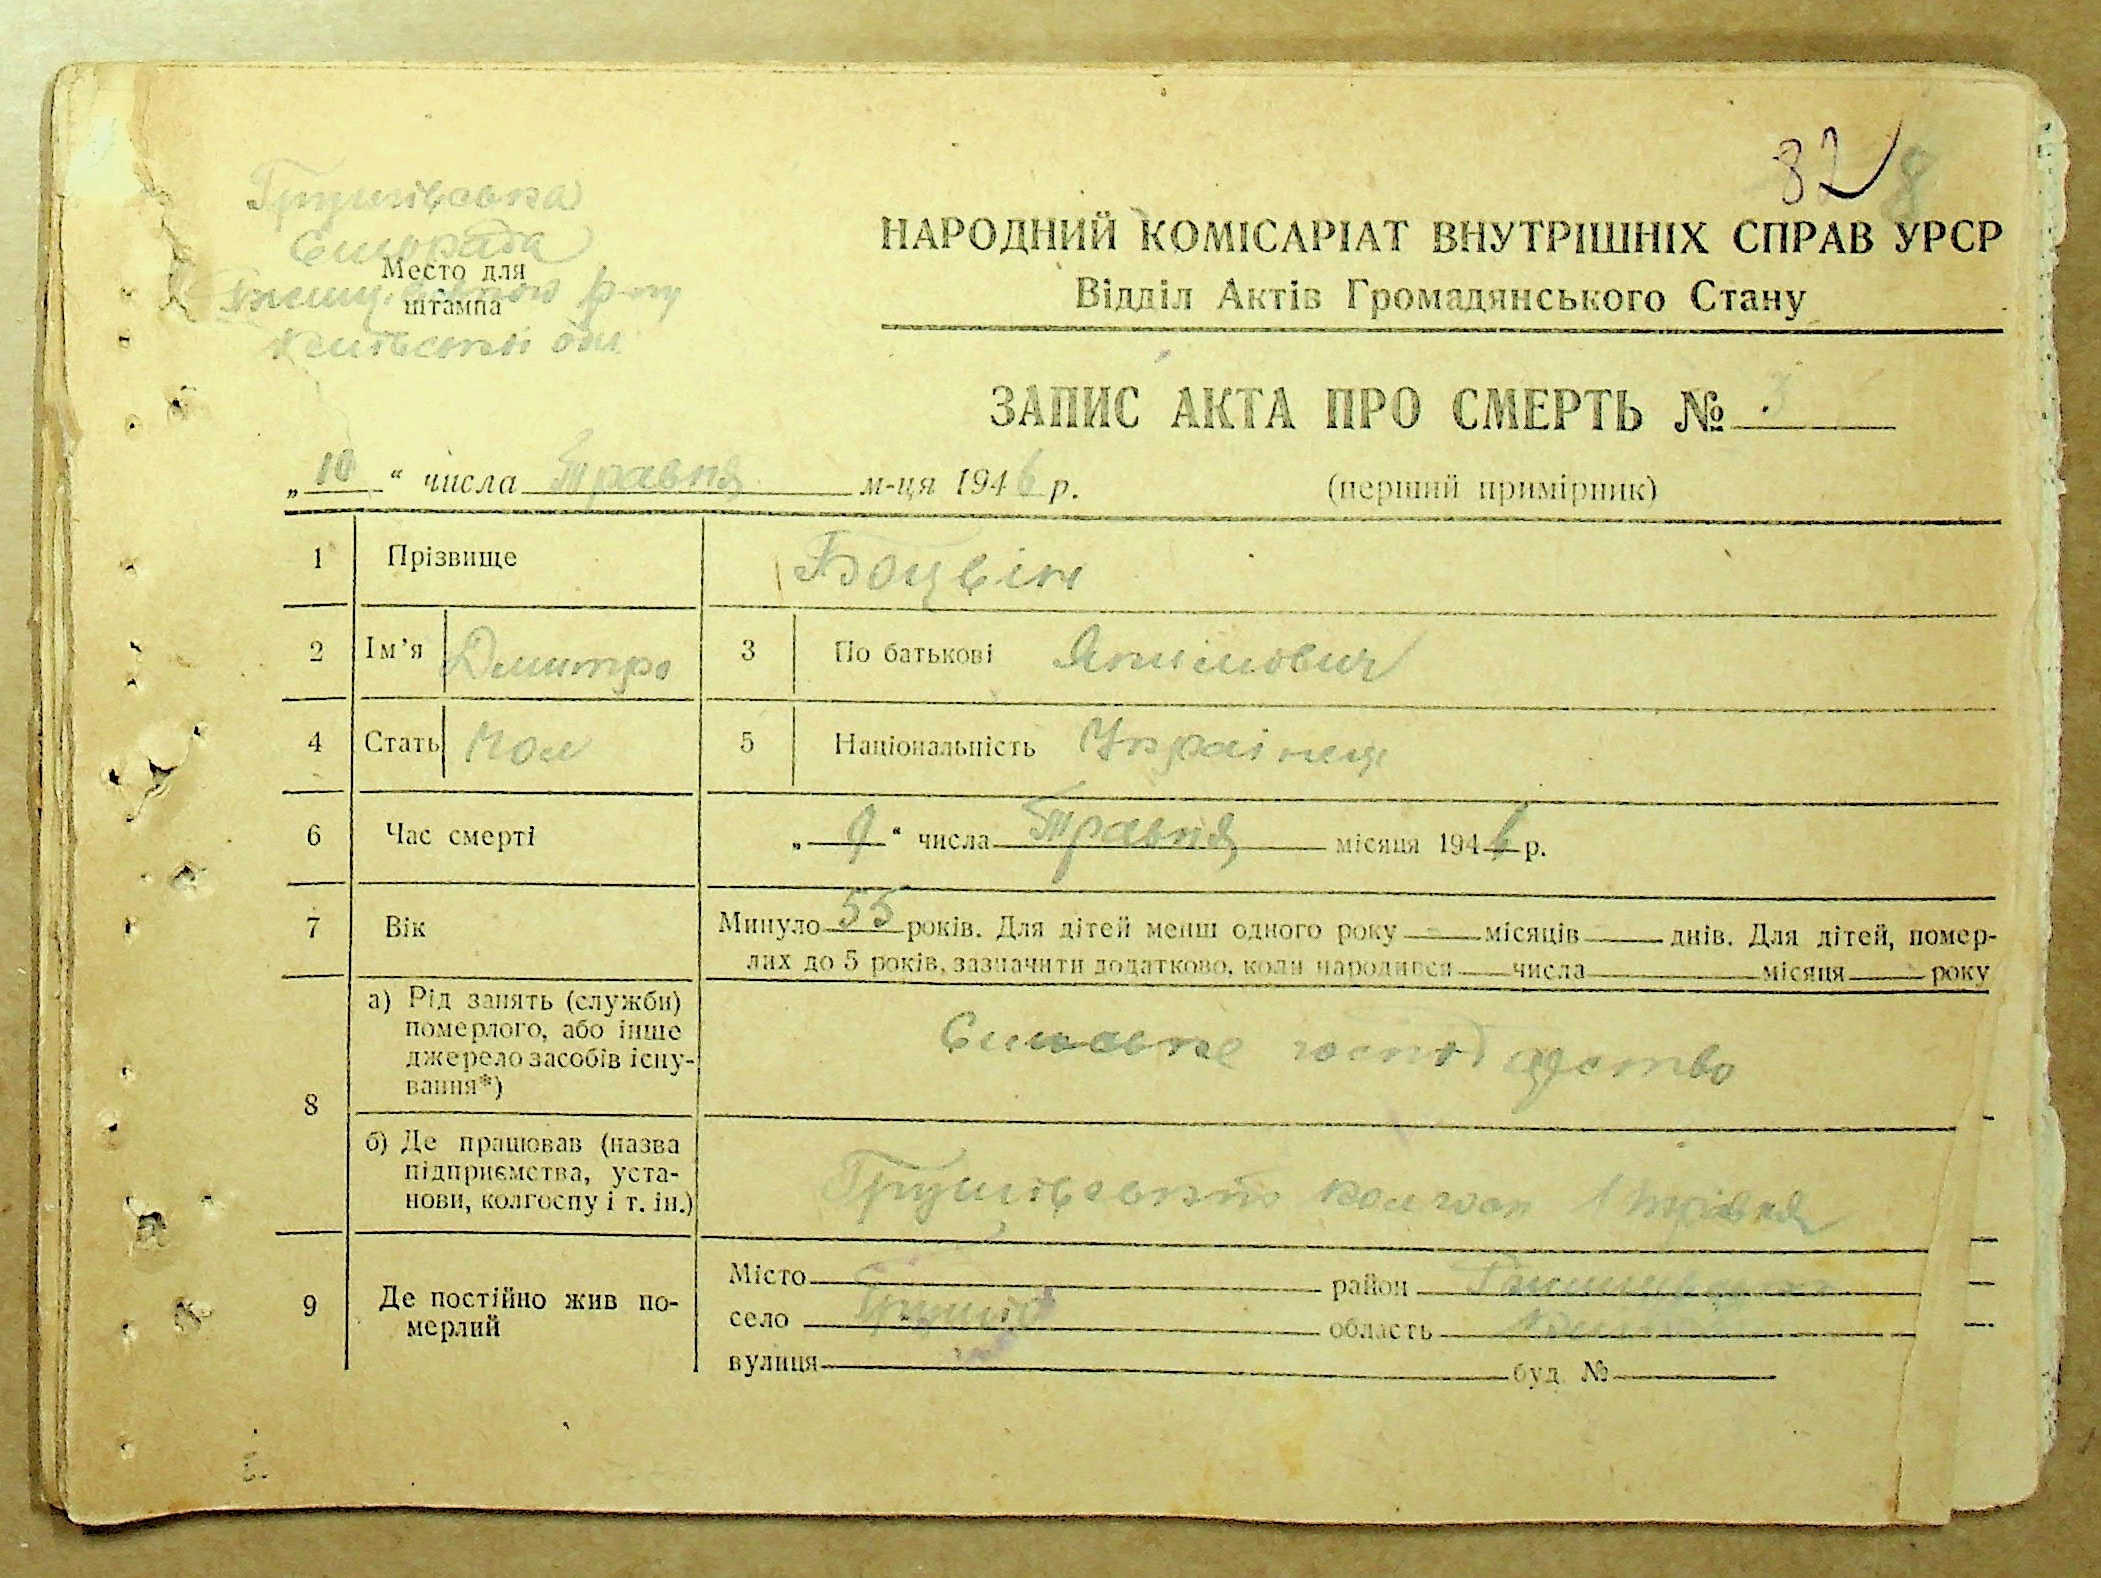 82 8
Грушівська
Сільрада
Место для
штампа
р-ну
Київської обл
НАРОДНИЙ КОМІСАРІАТ ВНУТРІШНІХ СПРАВ УРСР
Відділ Актів Громадянського Стану
ЗАПИС АКТА ПРО СМЕРТЬ № 3
„10“ числа Травня м-ця 1946 р.
(перший примірник)
1 Прізвище Боцвін
2 Ім’я Дмитро 3 По батькові Якимович
4 Стать Чол 5 Національність Українец
6 Час смерті „9“ числа Травня місяця 1946 р.
7 Вік Минуло 55 років. Для дітей менш одного року місяців днів. Для дітей, помер-
лих до 5 років, зазначити додатково, коли народився числа місяця року
8 а) Рід занять (службн)
померлого, або інше
джерело засобів існу-
вання*)
Сильське господарство
б) Де працював (назва
підприємства, уста-
нови, колгоспу і т. ін.)
колгосп 1 травня
9 Де постійно жив по-
мерлий
Місто район
село Грушів область
вулиця буд. №